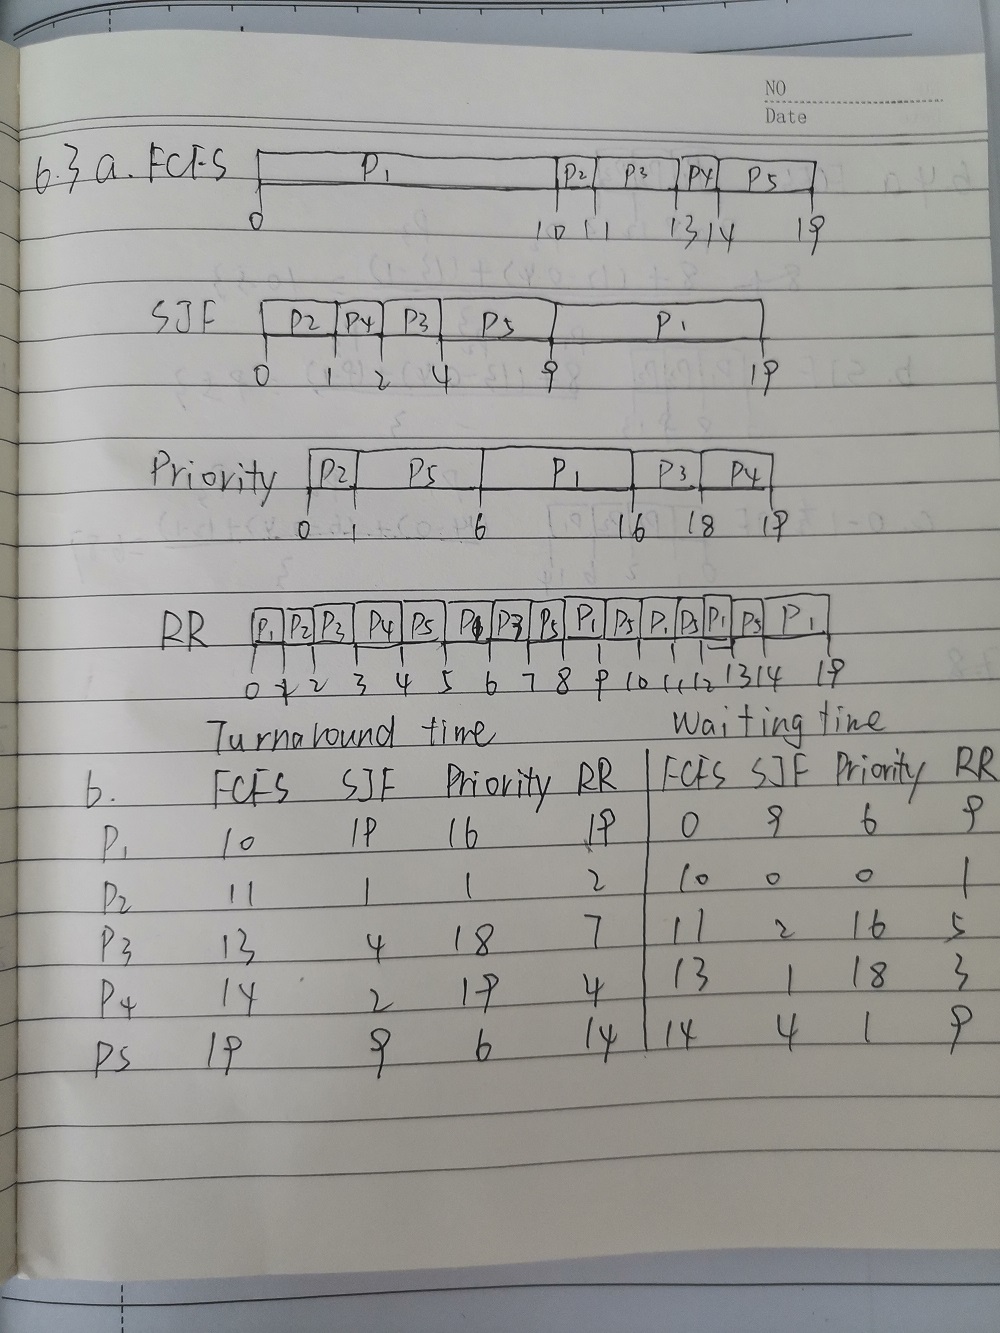 NO
Date
6.3 a. FCFS P1 P2 P3 P4 P5
0 10 11 13 14 19
SJF P2 P4 P3 P5 P1
0 1 2 4 9 19
Priority P2 P5 P1 P3 P4
0 1 6 16 18 19
RR P1 P2 P3 P4 P5 P1 P3 P5 P1 P5 P1 P5 P1 P5 P1
0 1 2 3 4 5 6 7 8 9 10 11 12 13 14 19
Turnaround time Waiting time
b. FCFS SJF Priority RR FCFS SJF Priority RR
P1 10 19 16 19 0 9 6 9
P2 11 1 1 2 10 0 0 1
P3 13 4 18 7 11 2 16 5
P4 14 2 19 4 13 1 18 3
P5 19 9 6 14 14 4 1 9